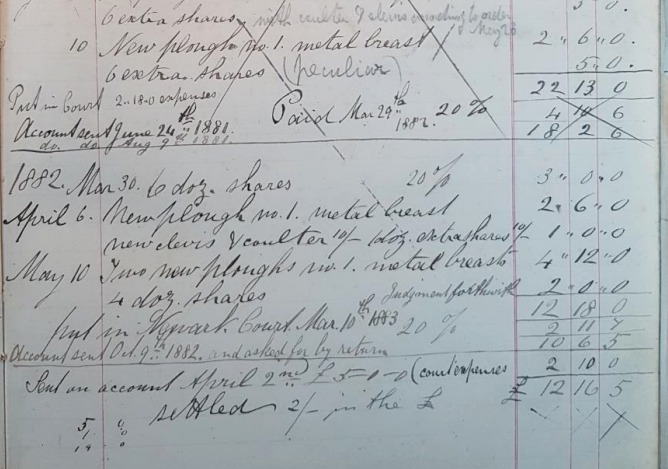 6 extra shares with coulter & clevis according to order 5 " 0.
May 26
10 New plough no. 1. metal breast 2 " 6 " 0.
6 extra shares (peculiar) 5 " 0.
22 13 0
Put in Court 2-18-0 expenses
Paid Mar 29th 1882. 20% 4 10 6
Account sent June 24th 1881. 18 2 6
do. do. Aug 9th 1881
1882. Mar 30. 6 doz. shares 20% 3 " 0 " 0
April 6. New plough no. 1. metal breast 2 " 6 " 0
new clevis & coulter 10/- 1 doz. extra shares 10/- 1 " 0 " 0
May 10 Two new ploughs no. 1. metal breasts 4 " 12 " 0
4 doz. shares 2 " 0 " 0
Judgment forthwith 12 18 0
put in Newark Court Mar. 10th 1883 20% 2 11 7
Account sent Oct. 9th 1882. and asked for by return 10 6 5
2 10 0
Sent on account April 2nd £5-0-0 (court expenses £ 12 16 5
settled 2/- in the £
5/ 0/0